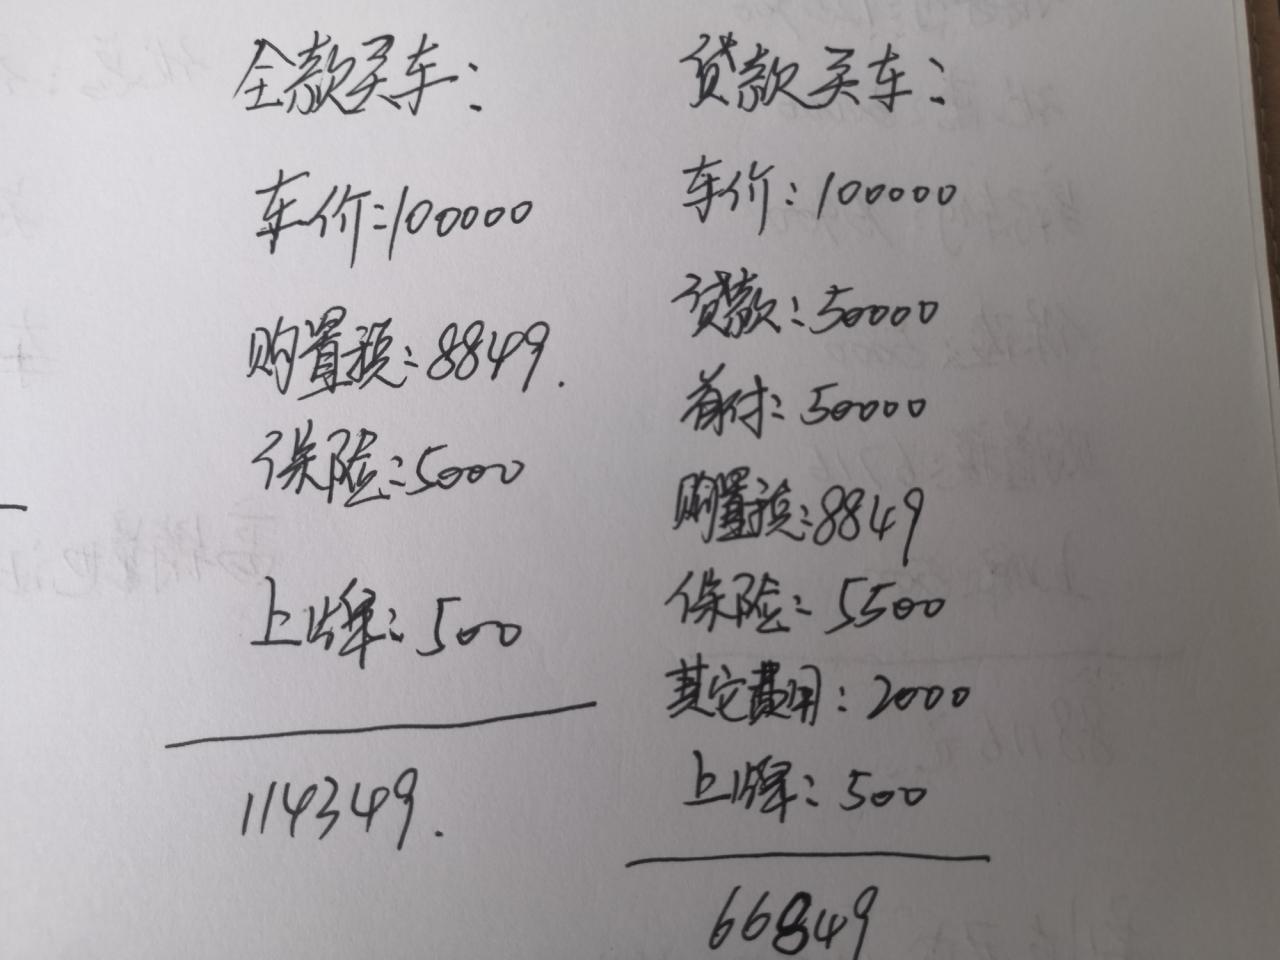 全款买车:
车价:100000
购置税:8849.
保险:5000
上牌:500
114349.
贷款买车:
车价:100000
贷款:50000
首付:50000
购置税:8849
保险:5500
其它费用:2000
上牌:500
66849